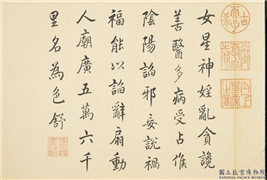 女星神婬亂貪譊
善醫多病受占惟
陰陽諂邪妄說禍
福能以諂辭扇動
人廟廣五萬六千
里名為色舒
國立故宮博物院
NATIONAL PALACE MUSEUM